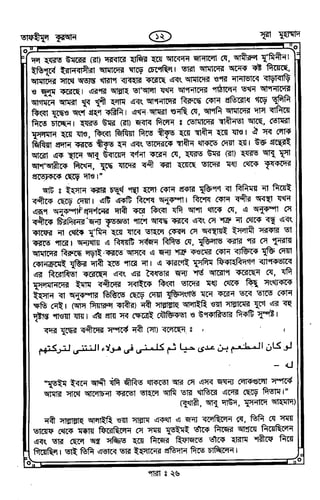 তাফহীমুল কুরআন
১২
সূরা মুহাম্মাদ
দল হযরত উমরের (রা) দরবারে হাজির হয়ে আবেদন জানালো যে, আমীরুল মু'মিনীন!
ইতিপূর্বে ইরানবাসীরা আমাদের ঘাড়ে চেপেছিল। তারা আমাদের অনেক কষ্ট দিয়েছে,
আমাদের সাথে অত্যন্ত খারাপ ব্যবহার করেছে এবং আমাদের ওপর নানাভাবে বাড়াবাড়ি
ও জুলুম করেছে। এরপর আল্লাহ তা'আলা যখন আপনাদের পাঠালেন তখন আপনাদের
আগমনে আমরা খুব খুশী হলাম এবং আপনাদের বিরুদ্ধে কোন প্রতিরোধ গড়ে তুলিনি
কিংবা যুদ্ধেও অংশ গ্রহণ করিনি। এখন আমরা শুনছি যে, আপনি আমাদের ক্রীতদাস বানিয়ে
নিতে চাচ্ছেন। হযরত উমর (রা) জবাব দিলেন : তোমাদের স্বাধীনতা আছে, তোমরা
মুসলমান হয়ে যাও, কিংবা জিযিয়া দিতে স্বীকৃত হয়ে স্বাধীন হয়ে যাও। ঐ সব লোক
জিযিয়া প্রদান করতে স্বীকৃত হন এবং তাদেরকে স্বাধীন থাকতে দেয়া হয়। উক্ত গ্রন্থেরই
আরো এক স্থানে আবু উবায়েদ বর্ণনা করেন যে, হযরত উমর (রা) হযরত আবু মূসা
আশ'আরীকে লিখেন, যুদ্ধে যাদের বন্দী করা হয়েছে তাদের মধ্য থেকে কৃষকদের
প্রত্যেককে ছেড়ে দাও।"
আট : ইহসান করার চতুর্থ পন্থা হলো কোন প্রকার মুক্তিপণ বা বিনিময় না নিয়েই
বন্দীকে ছেড়ে দেয়া। এটি একটি বিশেষ অনুকম্পা। বিশেষ কোন বন্দীর অবস্থা যখন
এরূপ অনুকম্পা প্রদর্শনের দাবী করে কিংবা যদি আশা থাকে যে, এ অনুকম্পা সে
বন্দীকে চিরদিনের জন্য কৃতজ্ঞতা পাশে আবদ্ধ করবে এবং সে শত্রু না থেকে বন্ধু এবং
কাফের না থেকে মু'মিন হয়ে যাবে তাহলে কেবল সে অবস্থায়ই ইসলামী সরকার তা
করতে পারে। অন্যথায় এ বিষয়টি সর্বজন বিদিত যে, মুক্তিলাভ করার পর সে পুনরায়
আমাদের বিরুদ্ধে লড়াই করতে আসবে এ জন্য শত্রু কওমের কোন ব্যক্তিকে মুক্তি দেয়া
কোনক্রমেই যুক্তির দাবী হতে পারে না। এ কারণেই মুসলিম ফিকাহবিদগণ ব্যাপকভাবে
এর বিরোধিতা করেছেন এবং এর বৈধতার জন্য শর্ত আরোপ করেছেন যে, যদি
মুসলমানদের ইমাম বন্দীদের সবাইকে কিংবা তাদের মধ্য থেকে কিছু সংখ্যককে
ইহসান বা অনুকম্পার ভিত্তিতে ছেড়ে দেয়া যুক্তিসংগত মনে করেন তবে তাতে কোন
ক্ষতি নেই। (আস সিয়ারুল কাবীর) নবী সাল্লাল্লাহু আলাইহি ওয়া সাল্লামের যুগে এর বহু
দৃষ্টান্ত পাওয়া যায়। এর প্রায় সব ক্ষেত্রেই যৌক্তিকতা ও উপকারিতার দিকটি সুস্পষ্ট।
বদর যুদ্ধের বন্দীদের সম্পর্কে নবী (সা) বলেছেন :
لو كان المطعم بن عدى حيا ثم كلمنى فى هؤلاء النتنى لتركتهم
له -
"মুতইম ইবনে আদ্দী যদি জীবিত থাকতো আর সে এসব জঘন্য লোকগুলো সম্পর্কে
আমার সাথে আলোচনা করতো তাহলে আমি তার খাতিরে এদের ছেড়ে দিতাম।"
(বুখারী, আবু দাউদ, মুসনাদে আহমাদ)
নবী সাল্লাল্লাহু আলাইহি ওয়া সাল্লাম একথা এ জন্য বলেছিলেন যে, তিনি যে সময়
তায়েফ থেকে মক্কায় ফিরেছিলেন সে সময় মুতইমই তাঁকে নিজের আশ্রয়ে নিয়েছিলেন
এবং তার ছেলে অস্ত্র সজ্জিত হয়ে নিজের হিফাজতে তাঁকে হারাম শরীফে নিয়ে
গিয়েছিল। তাই তিনি এভাবে তার ইহসানের প্রতিদান দিতে চাচ্ছিলেন।
পারা : ২৬